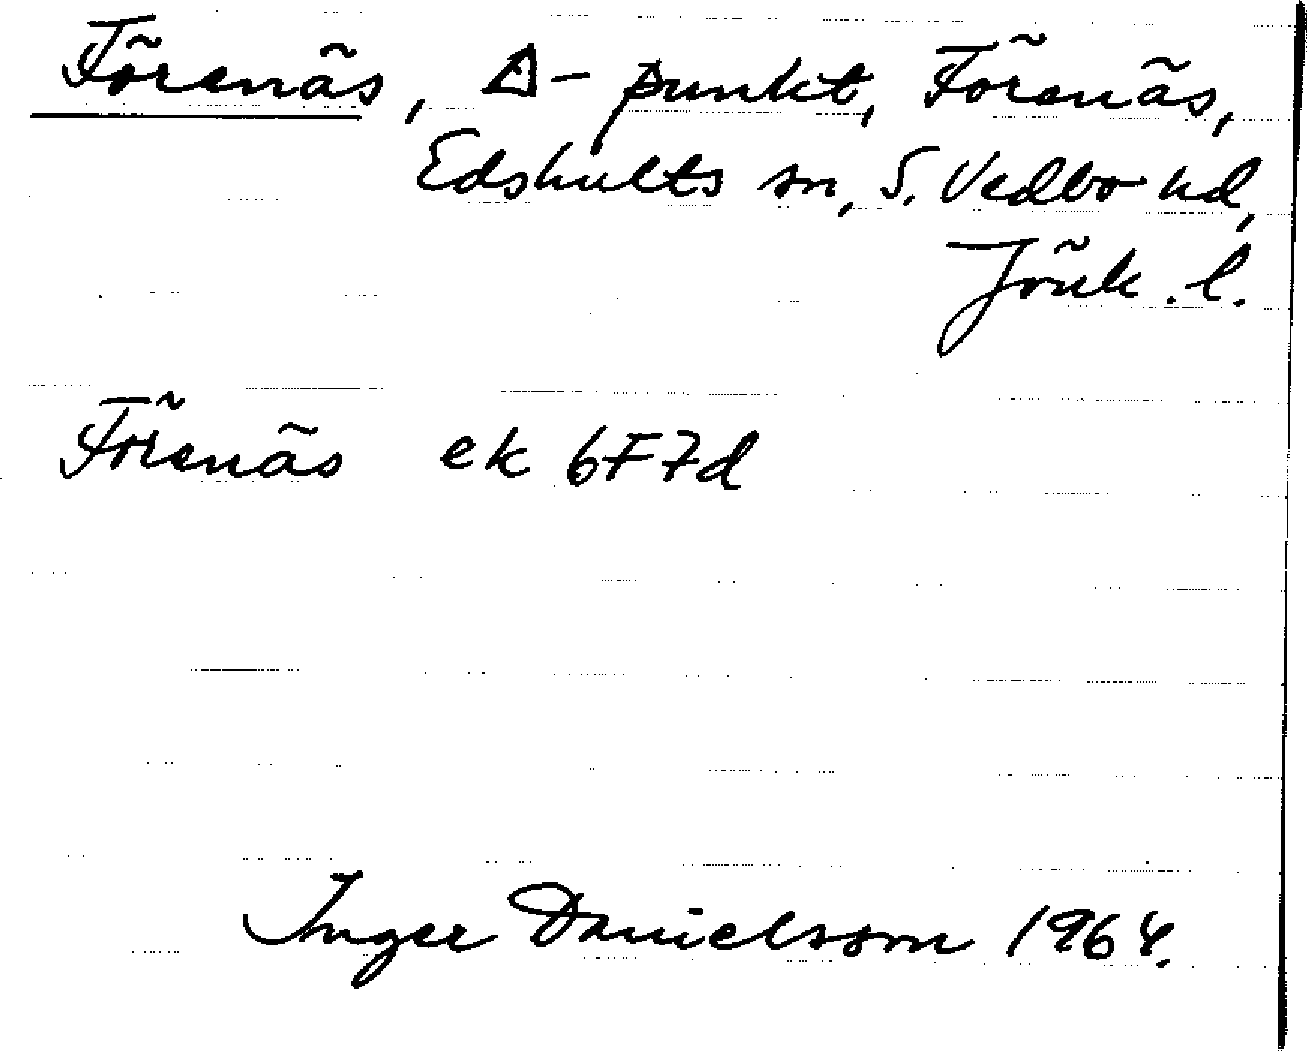 Försnäs, △-punkt, Försnäs,
Edshults sn, S. Vedbo hd,
Jönk. l.
Försnäs ek 6F7d
Inger Danielsson 1964.